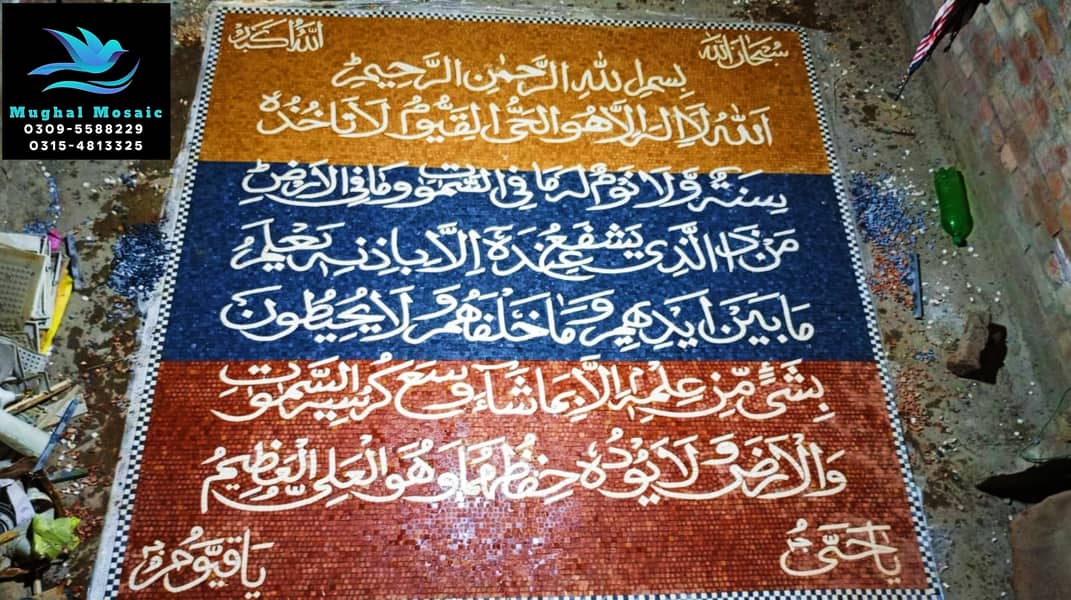 Mughal Mosaic
0309-5588229
0315-4813325
سبحان الله
الله اکبر
بسم الله الرحمن الرحيم
الله لا اله الا هو الحي القيوم لا تاخذه
سنة ولا نوم له ما في السموت وما في الارض
من ذا الذي يشفع عنده الا باذنه يعلم
ما بين ايديهم وما خلفهم ولا يحيطون
بشيء من علمه الا بما شاء وسع كرسيه السموت
والارض ولا يوده حفظهما وهو العلي العظيم
يا حي
يا قيوم